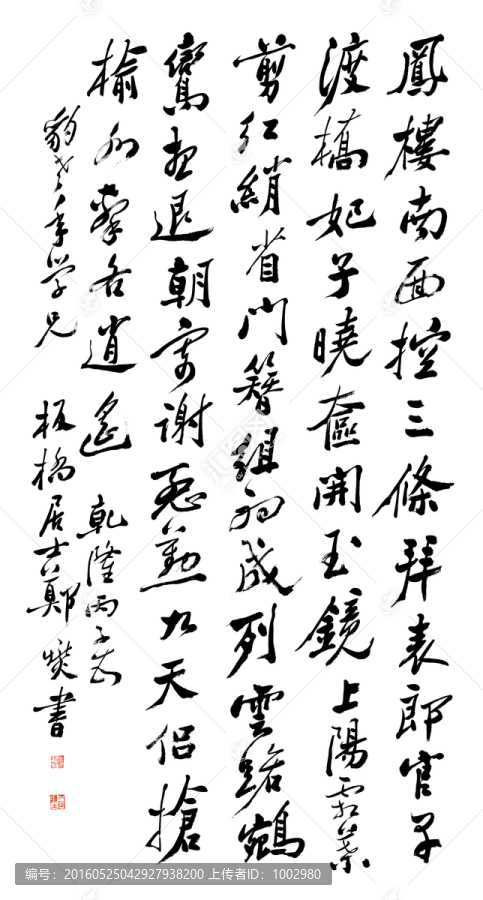 鳳樓南面控三條拜表郎官早
渡橋妃子曉奩開玉鏡上陽霜葉
剪紅綃省門簪組初成列雲路鵷
鸞想退朝寄謝慇懃九天侶搶
榆水擊各逍遙 乾隆丙子
豹老年学兄
板橋居士鄭燮書
编号：20160525042927938200 上传者ID：1002980